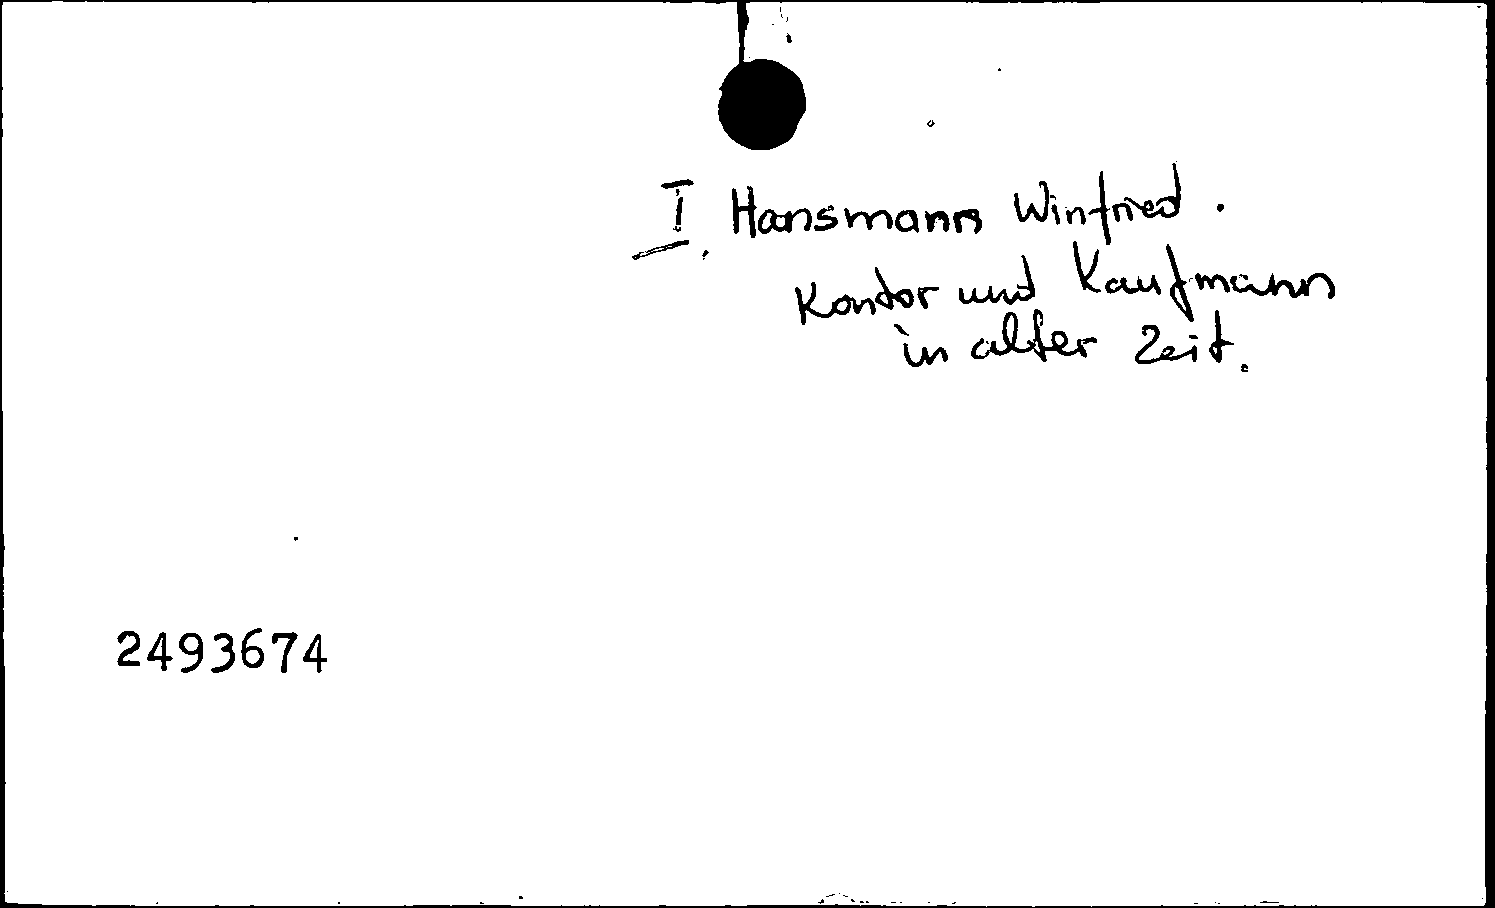 I. Hansmann Winfried.
Kontor und Kaufmann
in alter Zeit.
2493674